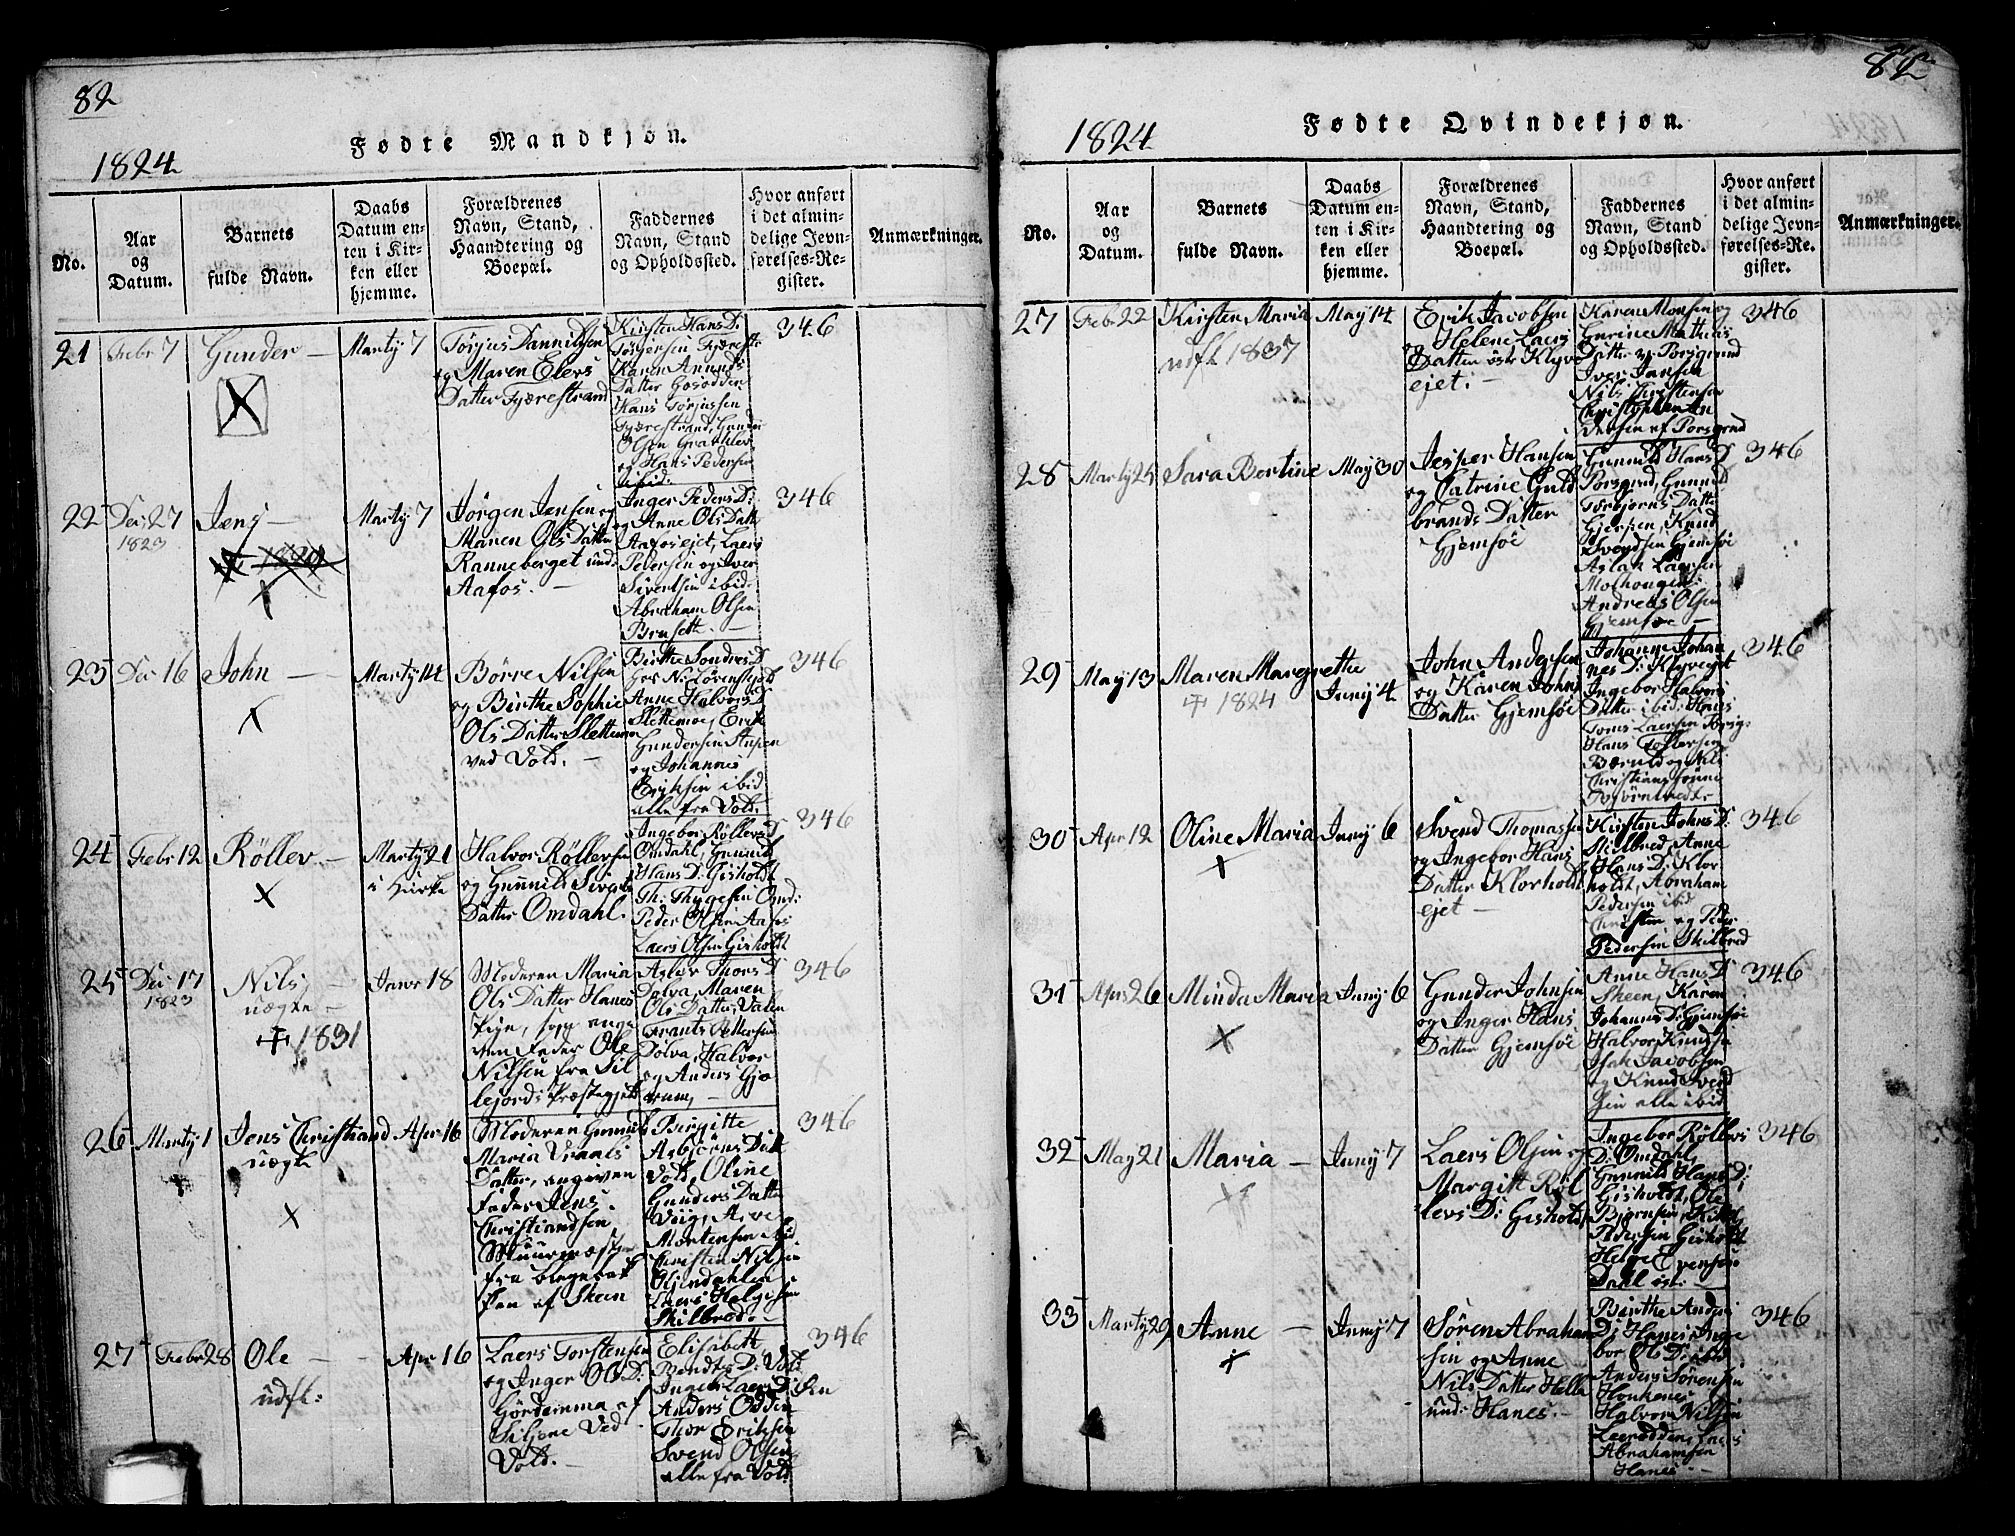 82
1824
Fødte Mandkjøn.
No.
Aar
og
Datum.
Barnets
fulde Navn.
Daabs
Datum en-
ten i Kir-
ken eller
hjemme.
Forældrenes
Navn, Stand,
Haandtering og
Boepæl.
Faddernes
Navn, Stand
og Opholdssted.
Hvor anført
i det almin-
delige Jevn-
førelses-Re-
gister.
Anmærkninger.
21 Febr 7 Gunder — Martÿ 7
Törjus Dannilsen
og Maren Elers
Datter Fjærestrand
Kirsten Hans D:
Törjersen Fjærestr
Karen Amunds
Datter
Hans Törjussen
Fjærestrand, Gunder
Olsen Grathlev
og Hans Pedersen
ibid:
346
22 Dec 27
1823
Jens — Martÿ 7
Jörgen Jensen og
Maren Ols Datter
Ranneberget und:
Aafos. —
Inger Peders D:
og Anne Ols Datt
Aafosejet, Laers
Pedersen og Iver
Sivertsen ibid:
Abraham Olsen
Brusett. —
346
23 Dec 16 John — Martÿ 14
Börre Nilsen
og Birthe Sophie
Ols Datter Slettemoe
ved Vold. —
Birthe Sondres D
Anne Halvors D
Slettemoe, Erik
Gundersen
og Johannes
Eriksen ibid
alle fra Vold.
346
24 Febr 12 Röllev — Martÿ 21
i Kirke
Halvor Röllevsen
og Gunnild Siverts
Datter Omdahl.
Ingebor Röllevs D
Omdahl, Gunnild
Hans D: Gisholdt
Th: Thygesen Omd:
Peder Olsen Aafos
Laers Olsen Gisholdt
346
25 Dec 17
1823
Nils, —
uægte —
✝ 1831
Janr 18
Moderen Maria
Ols Datter Hanes
Pige, som angi
ven Fader Ole
Nilsen fra Sil
lejords Præstegjeld
Aslov Thors D
Dolva, Maren
Ols Datter, Valen
Frants Pettersen
Dolva, Halvor
og Anders Gjæ
rum, —
346
26 Martÿ 1 Jens Christiand Apr 16
uægte
Moderen Gunnild
Maria Vraals
Datter, angiven
Fader Jens
Christiandsen
Muurmæster
fra
af Skeen
Birgitte
Asbjörns Datt
Vold, Oline
Gunders Datter
Vüg, Arve
Mortensen ibid
Christen Nilsen
Hjendahlen
Laers Helgesen
Skilbred. —
346
27 Febr 28 Ole — — Apr 16
udfl:
Laers Torstensen
og Inger Ols D:
Gördemma af
Siljore Ved
Vold. —
Elisabett
Bendts D: Vold
Ingebor Laers D:
Anders Odden
Thor Eriksen
Svend Olsen
alle fra Vold
346
82
1824
Fødte Qvindekjøn.
No.
Aar
og
Datum.
Barnets
fulde Navn.
Daabs
Datum en-
ten i Kir-
ken eller
hjemme.
Forældrenes
Navn, Stand,
Haandtering og
Boepæl.
Faddernes
Navn, Stand
og Opholdssted.
Hvor anført
i det almin-
delige Jevn-
førelses-Re-
gister.
Anmærkninger.
27 Febr 22 Kirsten Maria May 14
udfl 1837
Erik Jacobsen
og Helene Laers
Datter östr Klyve
ejet. —
Karen Monsen og
Gurine Mathias
Datter af Porsgrund
Iver Jansen
Nils Christensen
Christopher An
dersen af Porsgrund
346
28 Martÿ 25 Sara Bertine May 30
Jesper Hansen
og Catrine Guld
brands Datter
Gjemsöe
Gunnild Hans D
Porsgrud, Gunnild
Torbjorns Datter
Gjerpen, Knud
Svendsen Gjemsöe
Aslak Laersen
Moehougen
Andreas Olsen
Gjemsøe —
346
29 May 13 Maren Margrethe
✝ 1824
Junÿ 4
John Andersen
og Karen Johns
Datter Gjemsöe
Johanne Johan
nes D: Klyveejet
Ingebor Halvors
Datter ibid: Hans
Toms Laersen Porsg:
Hans Tostersen
Bærulf og Nils
Christians
346
30 Apr 12 Oline Maria Junÿ 6
Svend Thomassen
og Ingebor Hans
Datter Klorholdt
ejet —
Kirsten Johns D:
Skilbred, Anne
Hans D: Klor
holdt, Abraham
Pedersen ibid
Christen og Peder
Pedersen Skilbred
346
31 Apr 26 Minda Maria Junÿ 6
Gunder Johnsen
og Inger Hans
Datter Gjemsöe
Anne Hans D
Skeen, Karen
Johannes D: Gjemsöe
Halvor Knudsen
Isak Jacobsen
og Knud Svend
sen alle ibid
346
32 May 21 Maria — Junÿ 7
Laers Olsen og
Margitt Röl
levs D: Gisholdt
Ingebor Röllevs
D: Omdahl,
Gunnild Hans D:
Gisholdt, Ole
Bjørnsen, Kittel
Pedersen Gisholdt
Helge Evensen
Dahl østr —
346
33 Martÿ 29 Anne — Junÿ 7
Sören Abraham
sen og Anne
Nils Datter Hella
und: Hanes. —
Birthe Anders
D: Hanes, Inge
bor Ols D: ibid
Anders Sörensen
Halvor Nilsen
Laers
Abrahamsen
Hanes —
346